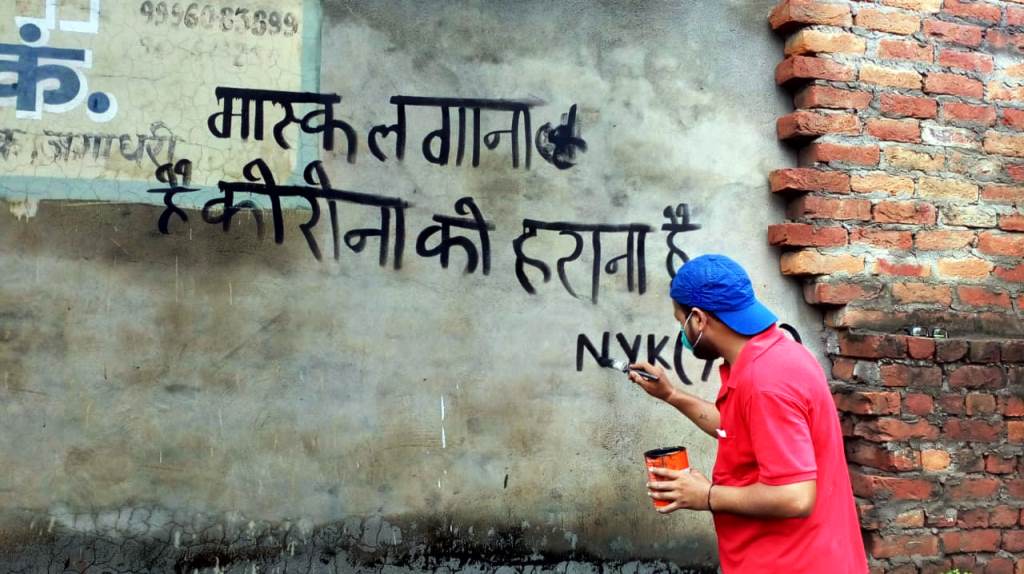 9996083899
कं.
जगाधरी
मास्क लगाना
है कोरोना को हराना है
NYK(